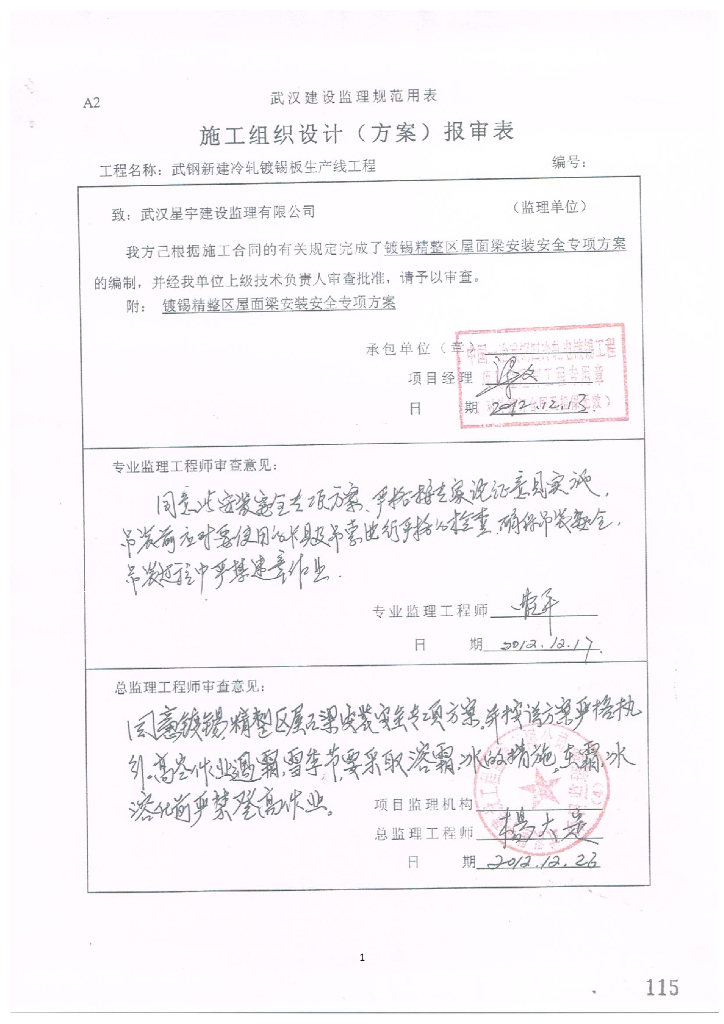 A2
武汉建设监理规范用表
施工组织设计（方案）报审表
工程名称：武钢新建冷轧镀锡板生产线工程 编号：
致：武汉星宇建设监理有限公司 （监理单位）
我方已根据施工合同的有关规定完成了镀锡精整区屋面梁安装安全专项方案
的编制，并经我单位上级技术负责人审查批准，请予以审查。
附： 镀锡精整区屋面梁安装安全专项方案
承包单位（章）
项目经理
日 期 2012.12.13
专业监理工程师审查意见：
同意此安装安全专项方案、严格按专家论证意见实施，
吊装前应对要使用的吊具及吊索进行严格的检查，确保吊装安全，
吊装过程中严禁违章作业.
专业监理工程师
日 期 2012.12.17.
总监理工程师审查意见：
同意镀锡精整区屋面梁安装安全专项方案，并按该方案严格执
行。高空作业遇霜，雪季节，要采取溶霜，冰的措施，在霜，冰
溶化前严禁登高作业。
项目监理机构
总监理工程师 杨大建
日 期 2012.12.26
1
115